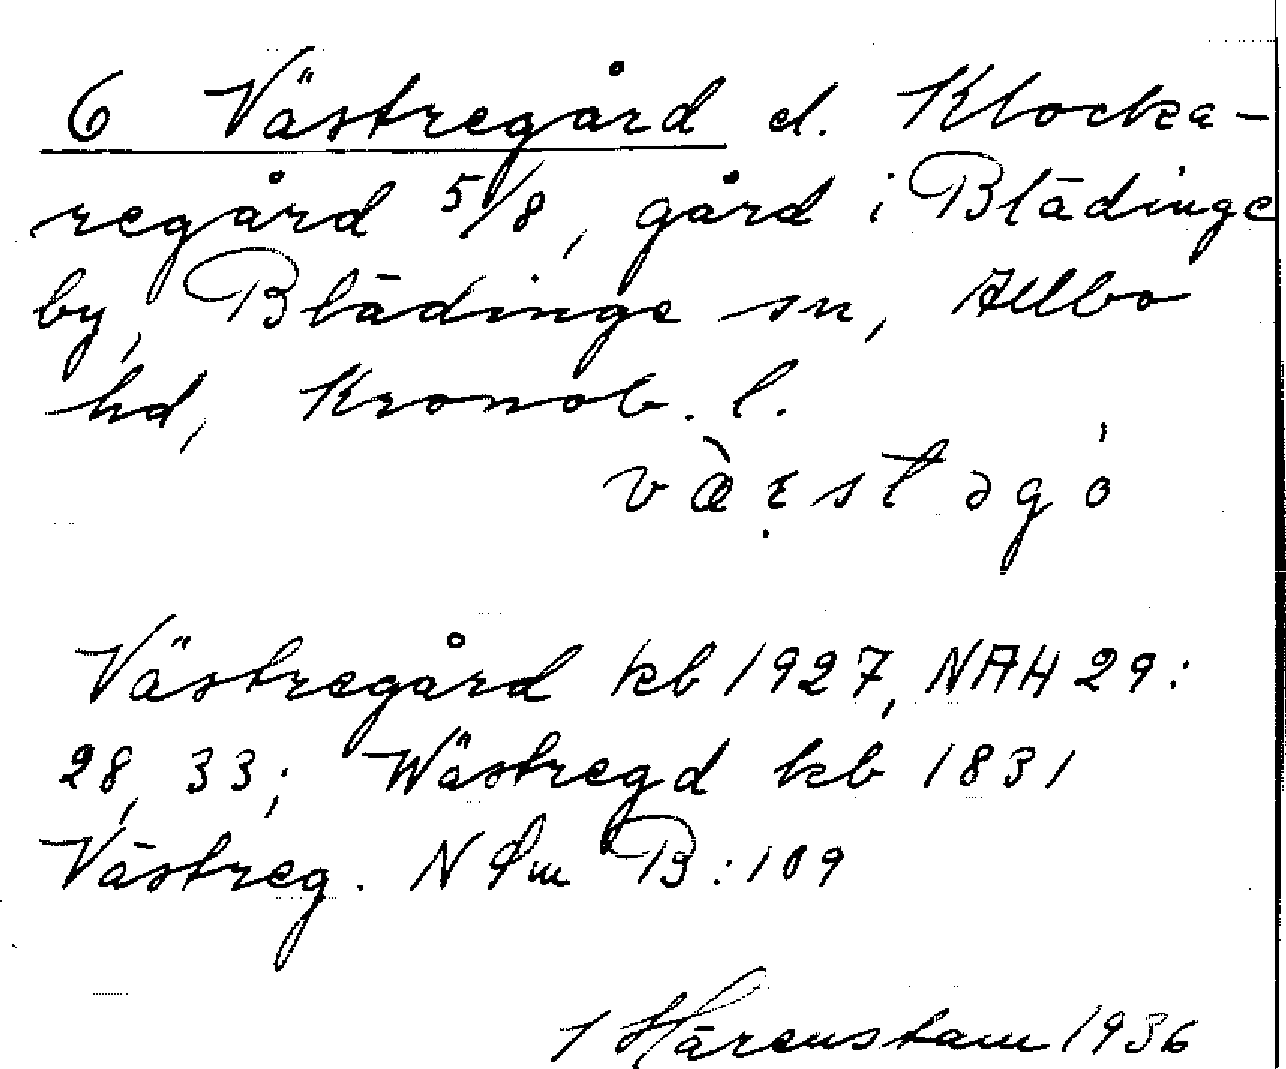 6 Västregård el. Klocka-
regård 5/8, gård i Blädinge
by, Blädinge sn, Allbo
hd, Kronob. l.
Västregård kb 1927, NAH 29:
28, 33; Wästregd kb 1831
Västreg. N Sm B:109
Härenstam 1936